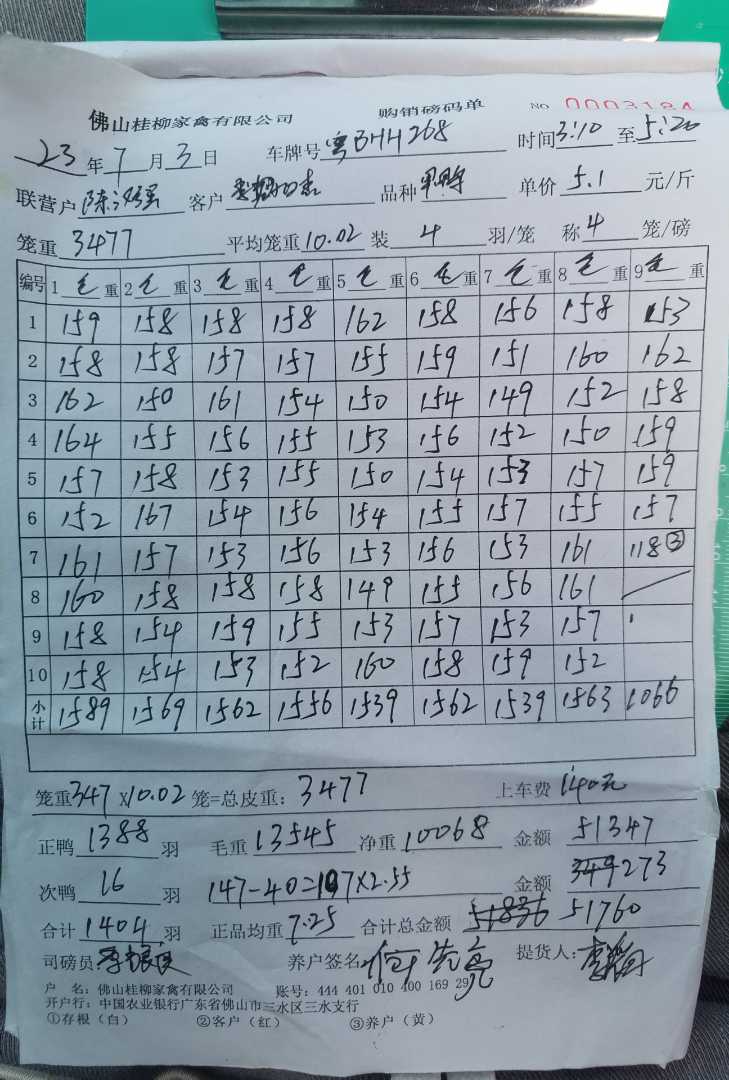 佛山桂柳家禽有限公司 购销磅码单 NO 0003184
23年7月3日 车牌号 粤BHH268 时间3:10至5:20
联营户 客户 品种 单价 5.1 元/斤
笼重 3477 平均笼重10.02 装 4 羽/笼 称 4 笼/磅
编号 1毛重 2毛重 3毛重 4毛重 5毛重 6毛重 7毛重 8毛重 9毛重
1 159 158 158 158 162 158 156 158 153
2 158 158 157 157 155 159 151 160 162
3 162 150 161 154 150 154 149 152 158
4 164 155 156 155 153 156 152 150 159
5 157 158 153 155 150 154 153 157 159
6 152 167 154 156 154 155 157 155 157
7 161 157 153 156 153 156 153 161 118③
8 160 158 158 158 149 155 156 161
9 158 154 159 155 153 157 153 157
10 158 154 153 152 160 158 159 152
小计 1589 1569 1562 1556 1539 1562 1539 1563 1066
笼重347×10.02笼=总皮重: 3477 上车费 1140元
正鸭 1388 羽 毛重 13545 净重 10068 金额 51347
次鸭 16 羽 147-40=107×2.55 金额 273
合计 1404 羽 正品均重 7.25 合计总金额 51836 51760
司磅员 养户签名 提货人:
户 名: 佛山桂柳家禽有限公司 账号: 444 401 010 400 169 29
开户行: 中国农业银行广东省佛山市三水区三水支行
①存根(白) ②客户(红) ③养户(黄)